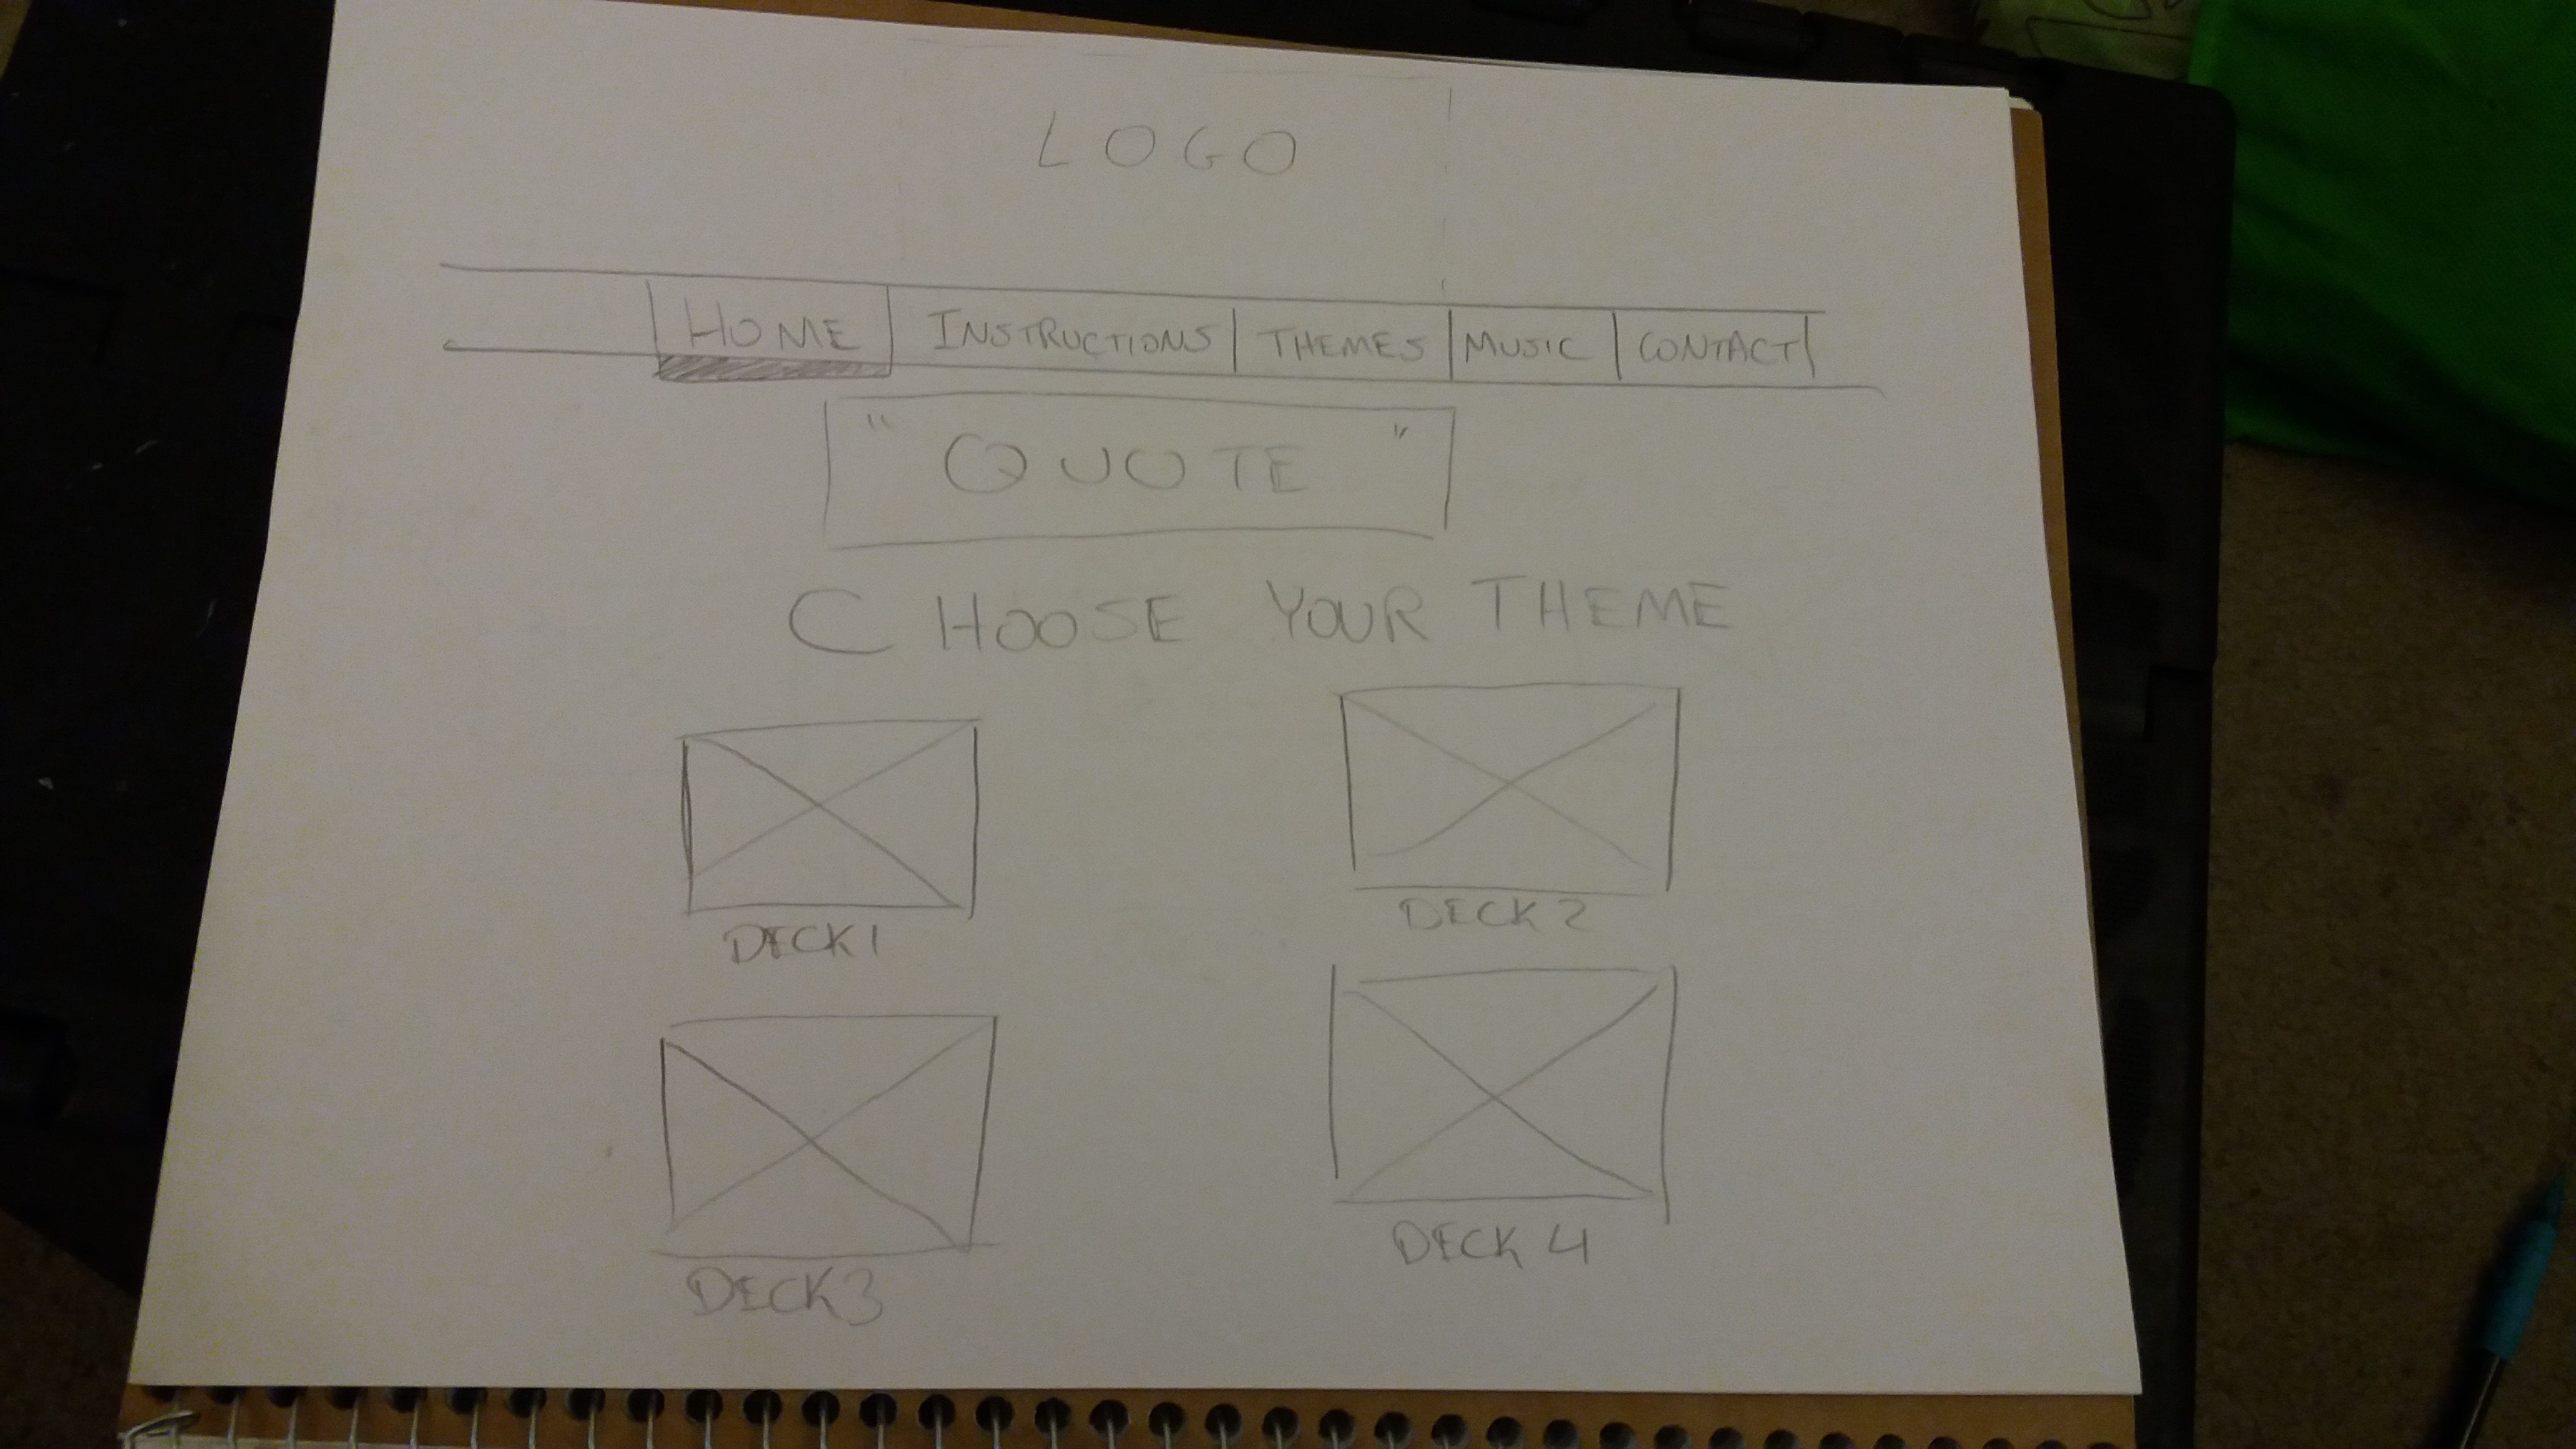 LOGO
HOME INSTRUCTIONS THEMES MUSIC CONTACT
" QUOTE "
CHOOSE YOUR THEME
DECK 1 DECK 2
DECK 3 DECK 4